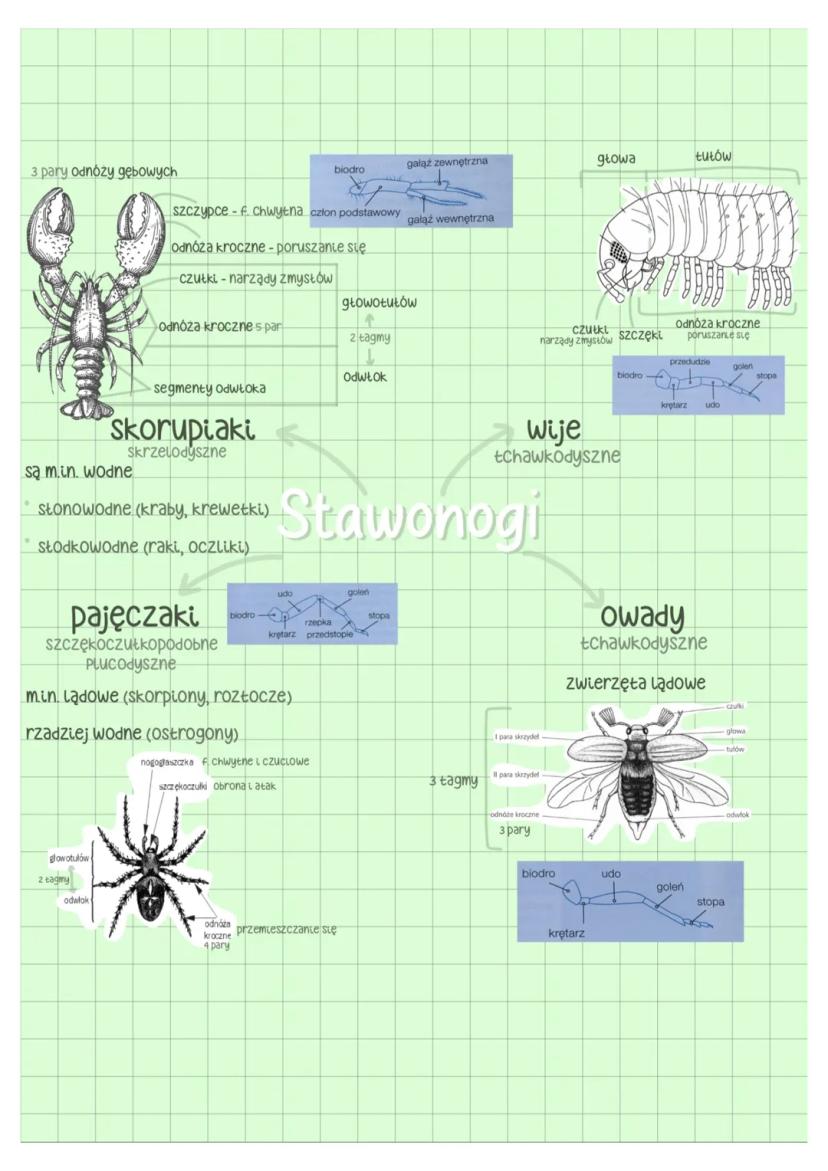 3 pary odnóży gębowych
szczypce - f. chwytna
odnóża kroczne - poruszanie się
czułki - narządy zmysłów
odnóża kroczne 5 par
segmenty odwłoka
głowotułów
2 tagmy
odwłok
biodro
gałąź zewnętrzna
człon podstawowy
gałąź wewnętrzna
głowa
tułów
czułki
narządy zmysłów
szczęki
odnóża kroczne
poruszanie się
przedudzie
biodro
goleń
stopa
krętarz
udo
skorupiaki
skrzelodyszne
są m.in. wodne
słonowodne (kraby, krewetki)
słodkowodne (raki, oczliki)
wije
tchawkodyszne
Stawonogi
pajęczaki
szczękoczułkopodobne
płucodyszne
udo
goleń
biodro
rzepka
stopa
krętarz
przedstopie
m.in. lądowe (skorpiony, roztocze)
rzadziej wodne (ostrogony)
nogogłaszczka f. chwytne i czuciowe
szczękoczułki obrona i atak
głowotułów
2 tagmy
odwłok
odnóża
kroczne
4 pary
przemieszczanie się
owady
tchawkodyszne
zwierzęta lądowe
3 tagmy
I para skrzydeł
II para skrzydeł
odnóże kroczne
3 pary
czułki
głowa
tułów
odwłok
biodro
udo
goleń
stopa
krętarz